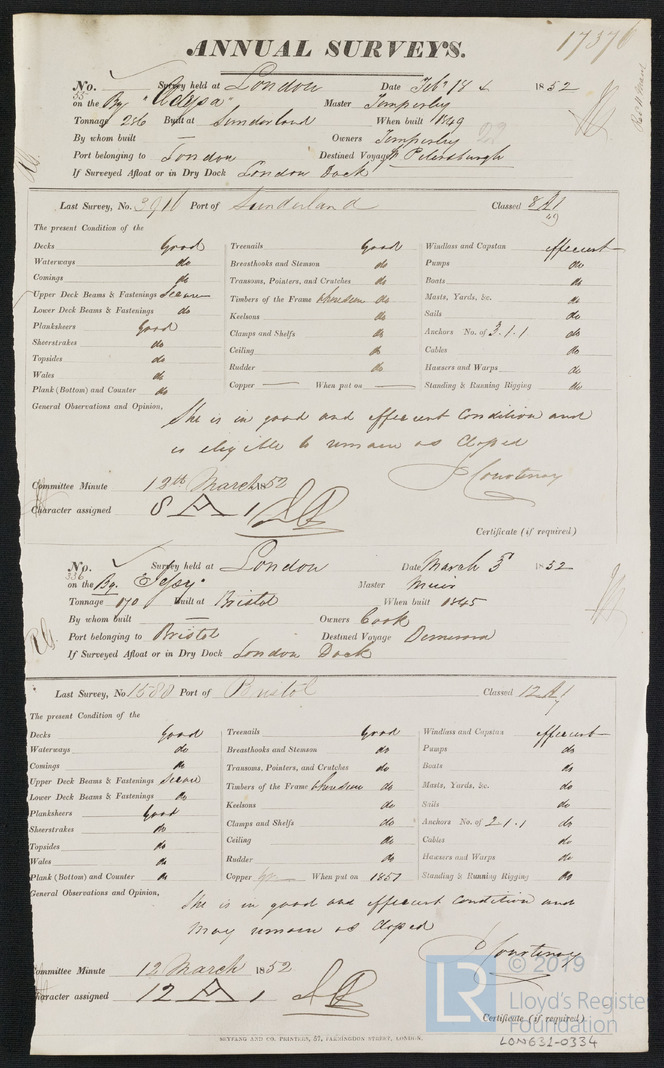 17376
ANNUAL SURVEYS.
No. Survey held at London Date Feby 18 1852
on the Bg Master Temperley
Tonnage 256 Built at Sunderland When built 1849
By whom built — Owners Temperley
Port belonging to London Destined Voyage St Petersburgh
If Surveyed Afloat or in Dry Dock London Dock
Last Survey, No. 3916 Port of Sunderland Classed 8 A 1
49
The present Condition of the
Decks Good Treenails Good Windlass and Capstan efficient
Waterways do Breasthooks and Stemson do Pumps do
Comings do Transoms, Pointers, and Crutches do Boats do
Upper Deck Beams & Fastenings Secure Timbers of the Frame where seen do Masts, Yards, &c. do
Lower Deck Beams & Fastenings do Keelsons do Sails do
Planksheers Good Clamps and Shelfs do Anchors No. of 3.1.1 do
Sheerstrakes do Ceiling do Cables do
Topsides do Rudder do Hawsers and Warps do
Wales do Copper — When put on — Standing & Running Rigging do
Plank (Bottom) and Counter do
General Observations and Opinion, She is in good and efficient Condition and
is eligible to remain as Classed
J Courtenay
Committee Minute 12th March 1852
Character assigned 8 A 1
Certificate (if required)
No. Survey held at London Date March 5 1852
336 on the Bg. Master Muir
Tonnage 170 Built at Bristol When built 1845
By whom built — Owners Cook
Port belonging to Bristol Destined Voyage Demerara
If Surveyed Afloat or in Dry Dock London Dock
Last Survey, No 1580 Port of Bristol Classed 12 A 1
The present Condition of the
Decks Good Treenails Good Windlass and Capstan efficient
Waterways do Breasthooks and Stemson do Pumps do
Comings do Transoms, Pointers, and Crutches do Boats do
Upper Deck Beams & Fastenings Secure Timbers of the Frame where seen do Masts, Yards, &c. do
Lower Deck Beams & Fastenings do Keelsons do Sails do
Planksheers Good Clamps and Shelfs do Anchors No. of 2.1.1 do
Sheerstrakes do Ceiling do Cables do
Topsides do Rudder do Hawsers and Warps do
Wales do Copper When put on 1851 Standing & Running Rigging do
Plank (Bottom) and Counter do
General Observations and Opinion, She is in good and efficient Condition and
may remain as Classed
J Courtenay
Committee Minute 12 March 1852
Character assigned 12 A 1
Certificate (if required)
SEYFANG AND CO. PRINTERS, 57, FARRINGDON STREET, LONDON.
LR © 2019
Lloyd's Register
Foundation
LON631-0334